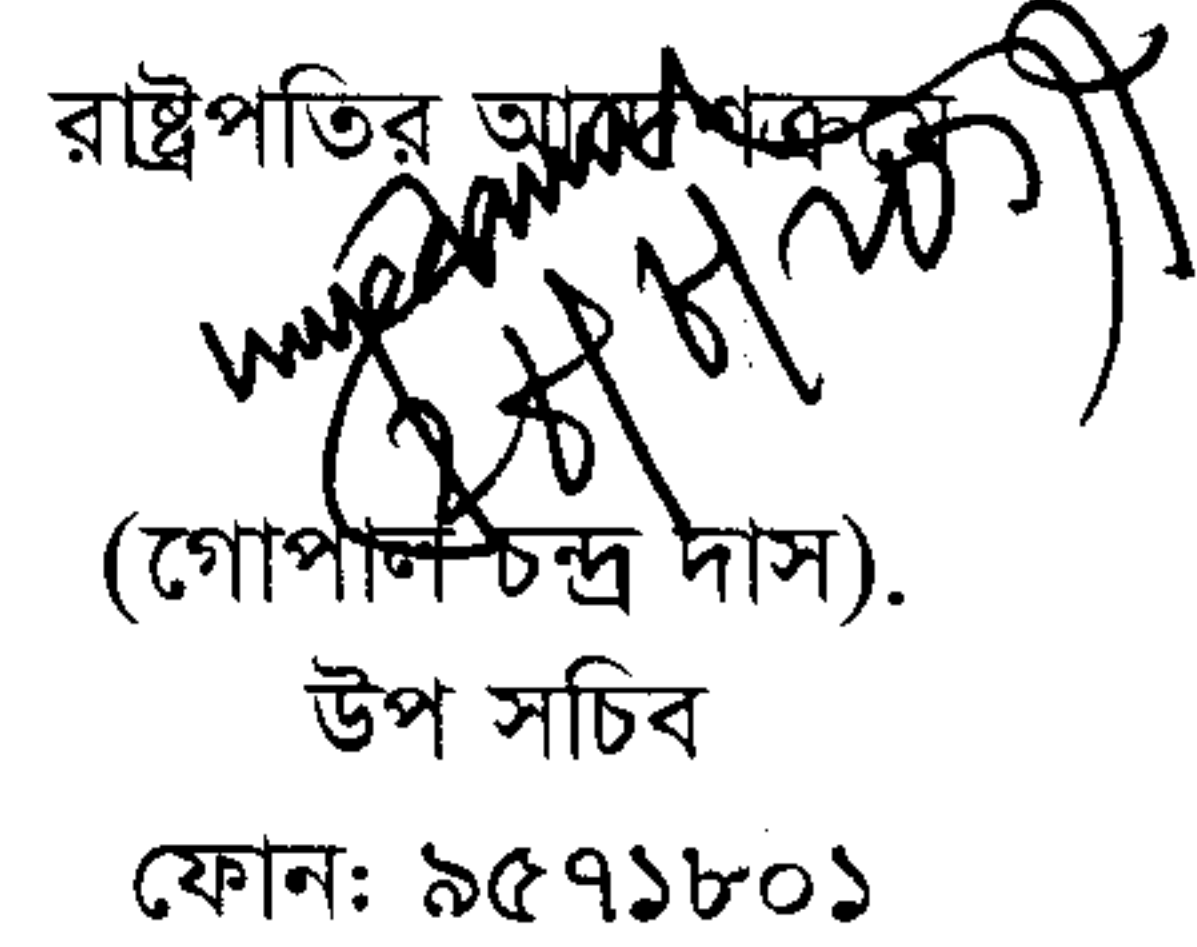 রাষ্ট্রপতির আদেশক্রমে
(গোপাল চন্দ্র দাস).
উপ সচিব
ফোন: ৯৫৭১৮০১